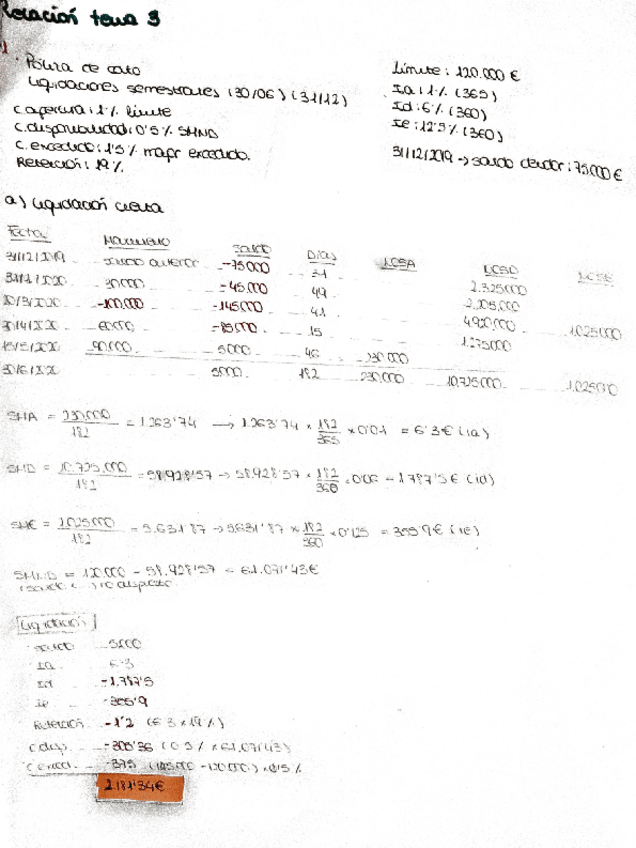 Relación tema 3
1
· Póliza de cto
Liquidaciones semestrales (30/06) (31/12)
C. apertura: 1% límite
C. disponibilidad: 0'5% SMND
C. excedido: 1'5% mayor excedido.
Retención: 19%
Límite: 120.000 €
Ia: 1% (365)
Id: 6% (360)
Ie: 12'5% (360)
31/12/2019 → saldo deudor: 75.000 €
a) Liquidación cuenta
Fecha Movimiento Saldo Días NCSA NCSD NCSE
31/12/2019 saldo anterior -75.000 31 2.325.000
31/1/2020 30.000 -45.000 49 2.205.000
20/3/2020 -100.000 -145.000 41 4.920.000 1.025.000
30/4/2020 60.000 -85.000 15 1.275.000
15/5/2020 90.000 5000 46 230.000
30/6/2020 5000 182 230.000 10.725.000 1.025.000
SMA = 230.000 / 182 = 1.263'74 → 1.263'74 × 182/365 × 0'01 = 6'3 € (ia)
SMD = 10.725.000 / 182 = 58.928'57 → 58.928'57 × 182/360 × 0'06 = 1.787'5 € (id)
SME = 1.025.000 / 182 = 5.631'87 → 5631'87 × 182/360 × 0'125 = 355'9 € (ie)
SMND = 120.000 - 58.928'57 = 61.071'43 €
Liquidación
saldo 5000
Ia 6'3
Id -1.787'5
Ie -355'9
Retención -1'2 (6'3 × 19%)
C. disp. -305'36 (0'5% × 61.071'43)
C. exced. -375 (145.000 - 120.000) × 1'5%
2.181'34 €